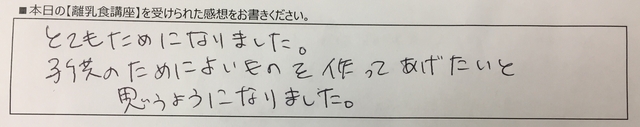 ■本日の【離乳食講座】を受けられた感想をお書きください。
とてもためになりました。
子供のためによいものを作ってあげたいと
思うようになりました。